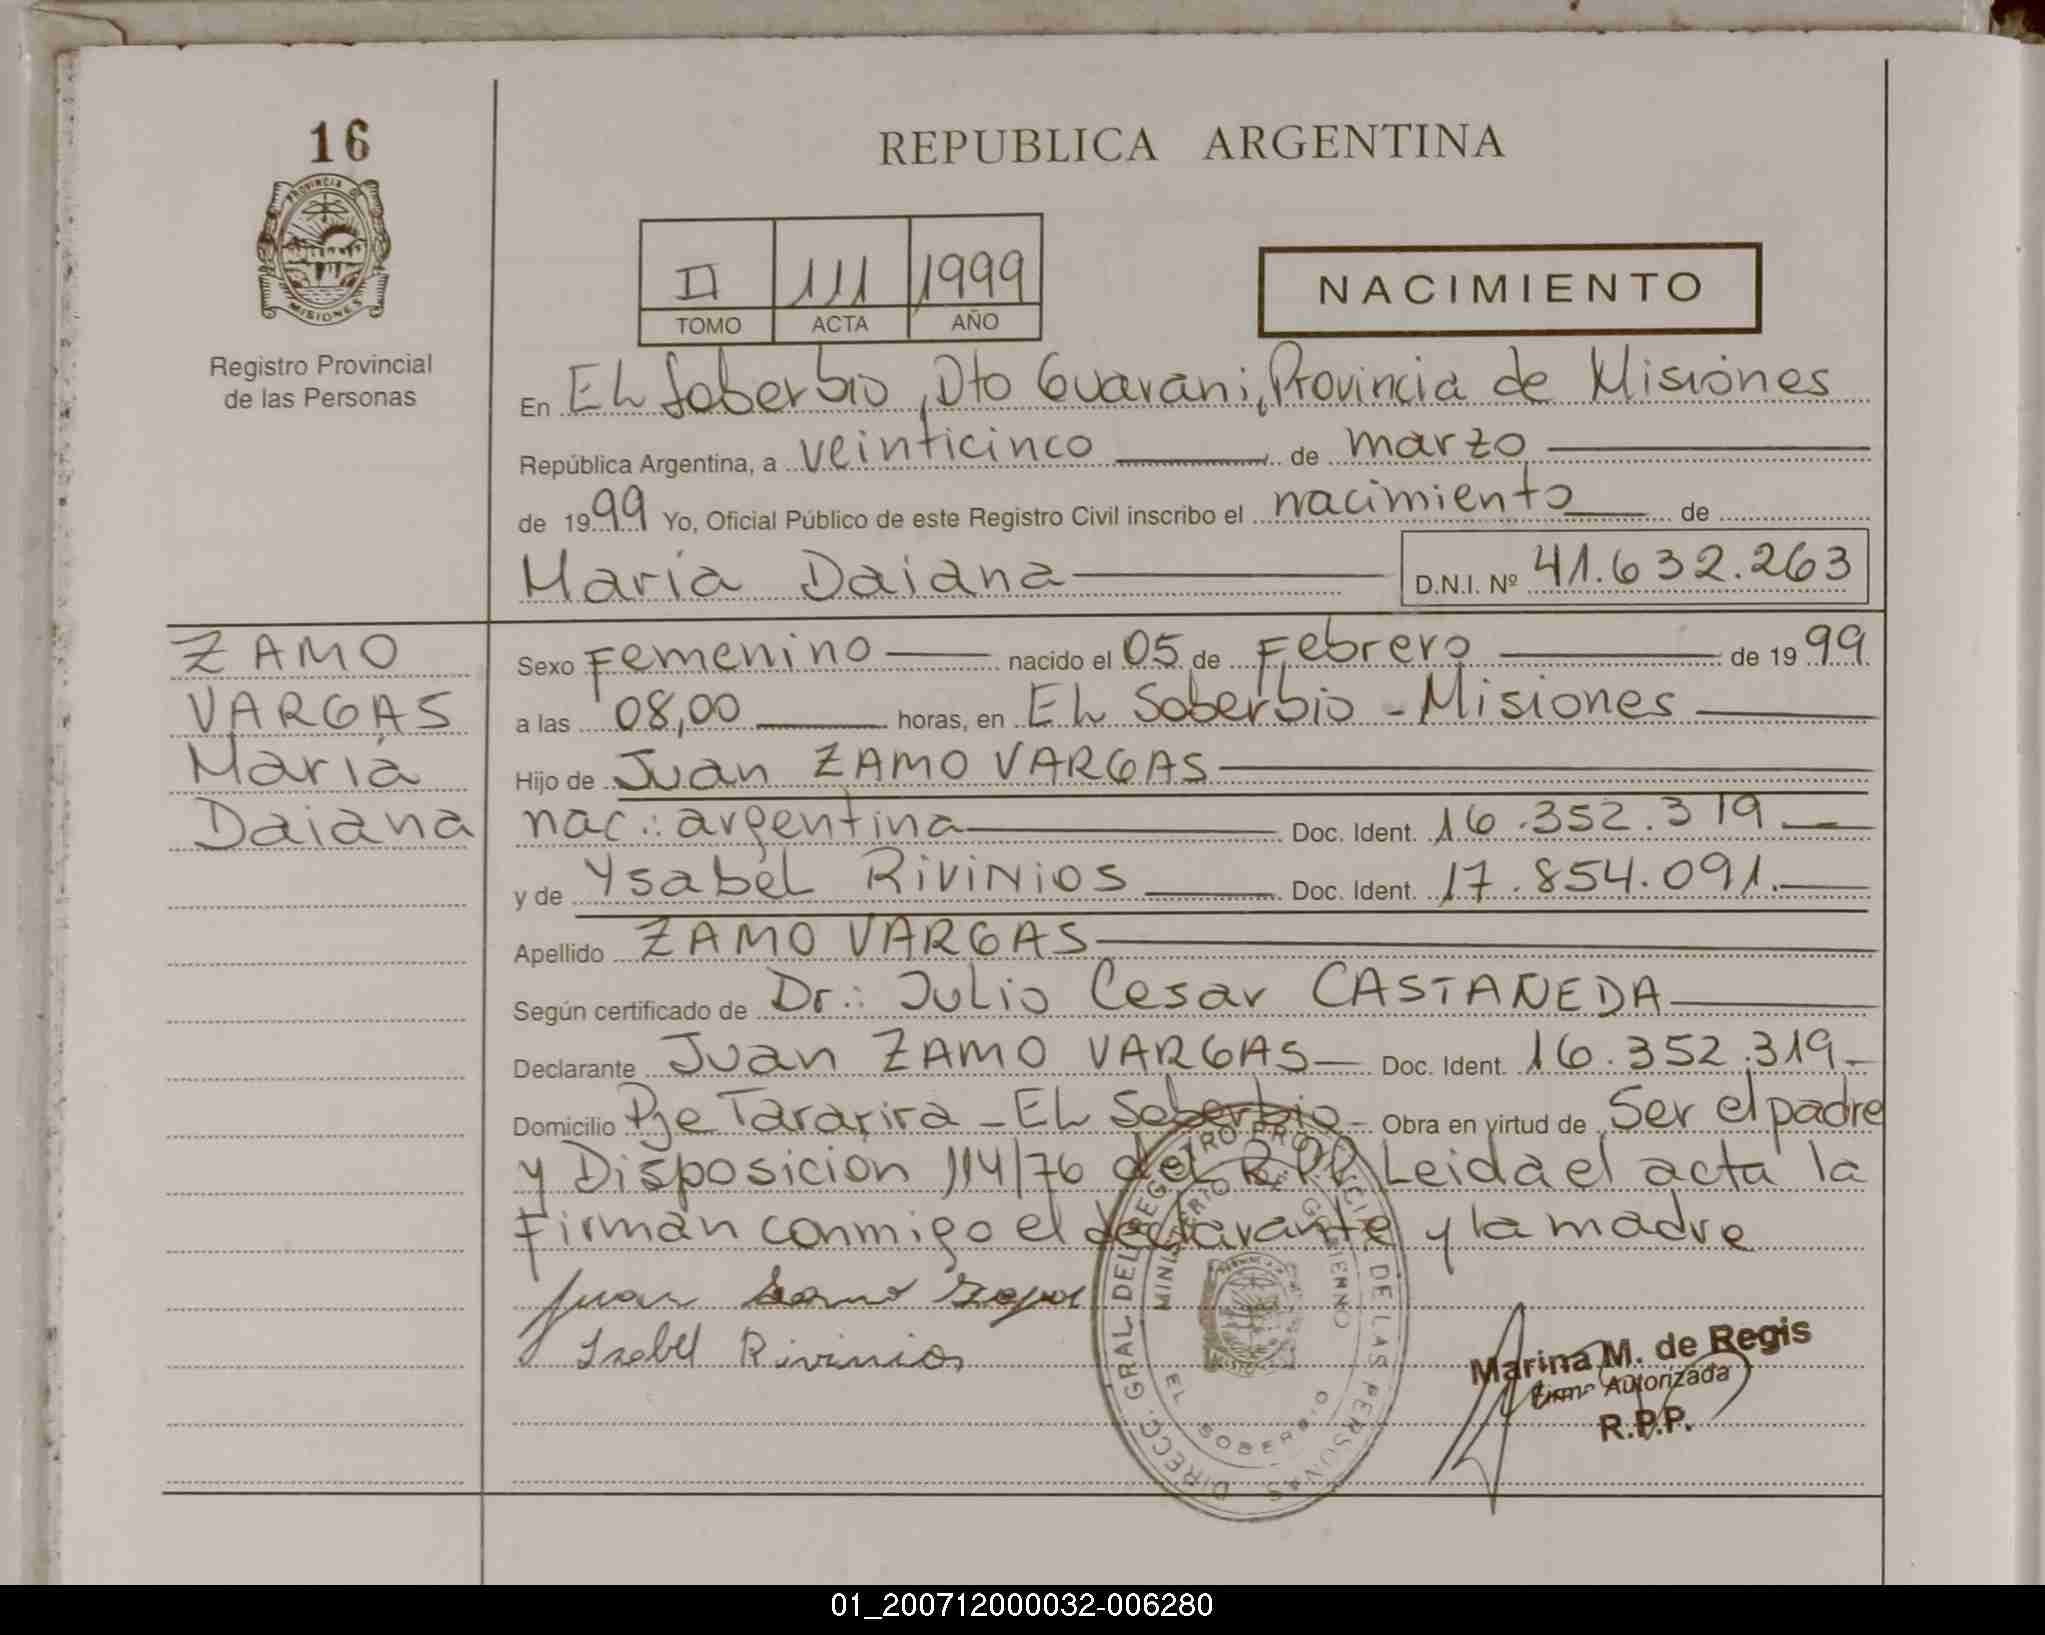 16
PROVINCIA DE
MISIONES
Registro Provincial
de las Personas
REPUBLICA ARGENTINA
II 111 1999
TOMO ACTA AÑO
NACIMIENTO
En EL Soberbio, Dto Guarani, Provincia de Misiones
República Argentina, a veinticinco de marzo
de 1999 Yo, Oficial Público de este Registro Civil inscribo el nacimiento de
Maria Daiana D.N.I. Nº 41.632.263
ZAMO
VARGAS
Maria
Daiana
Sexo Femenino nacido el 05 de Febrero de 1999
a las 08,00 horas, en EL Soberbio - Misiones
Hijo de Juan ZAMO VARGAS
nac.: argentina Doc. Ident. 16.352.319
y de Ysabel RiViNiOS Doc. Ident. 17.854.091.
Apellido ZAMO VARGAS
Según certificado de Dr.: Julio Cesar CASTAÑEDA
Declarante Juan ZAMO VARGAS Doc. Ident. 16.352.319
Domicilio Pje Tararira - EL Soberbio - Obra en virtud de Ser el padre
y Disposicion 114/76 del R.P.P. Leida el acta la
Firman conmigo el declarante y la madre
Juan
Isabel Rivinios
DIRECC. GRAL DEL REGISTRO PROVINCIAL DE LAS PERSONAS
MINISTERIO DE GOBIERNO
EL SOBERBIO
Marina M. de Regis
Firma Autorizada
R.P.P.
01_200712000032-006280